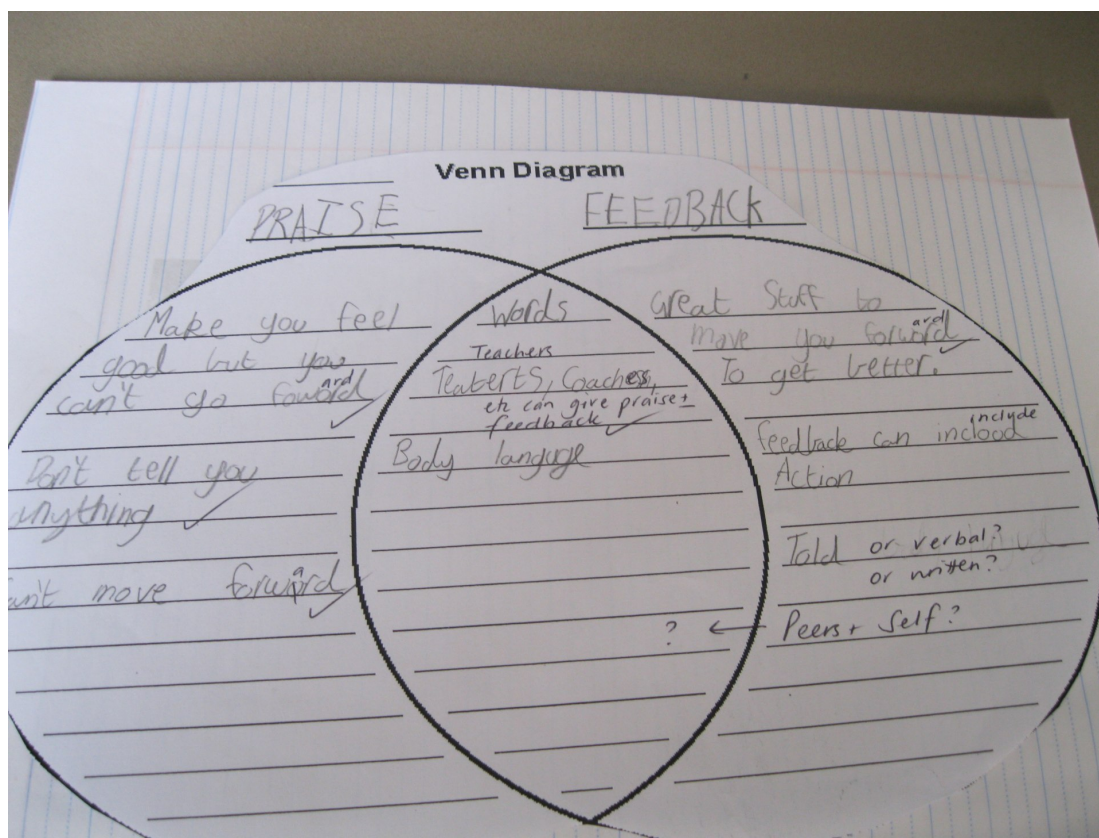 Venn Diagram
PRAISE
FEEDBACK
Make you feel
good but you
can't go foword
ard
Don't tell you
anything
can't move forword
a
Words
Teachers
Teaterts, Coaches,
etc can give praise +
feedback
Body languge
Great Stuff to
move you forword
ard
To get better.
include
feedback can inclood
Action
Told or verbal?
or written?
? ← Peers + Self?